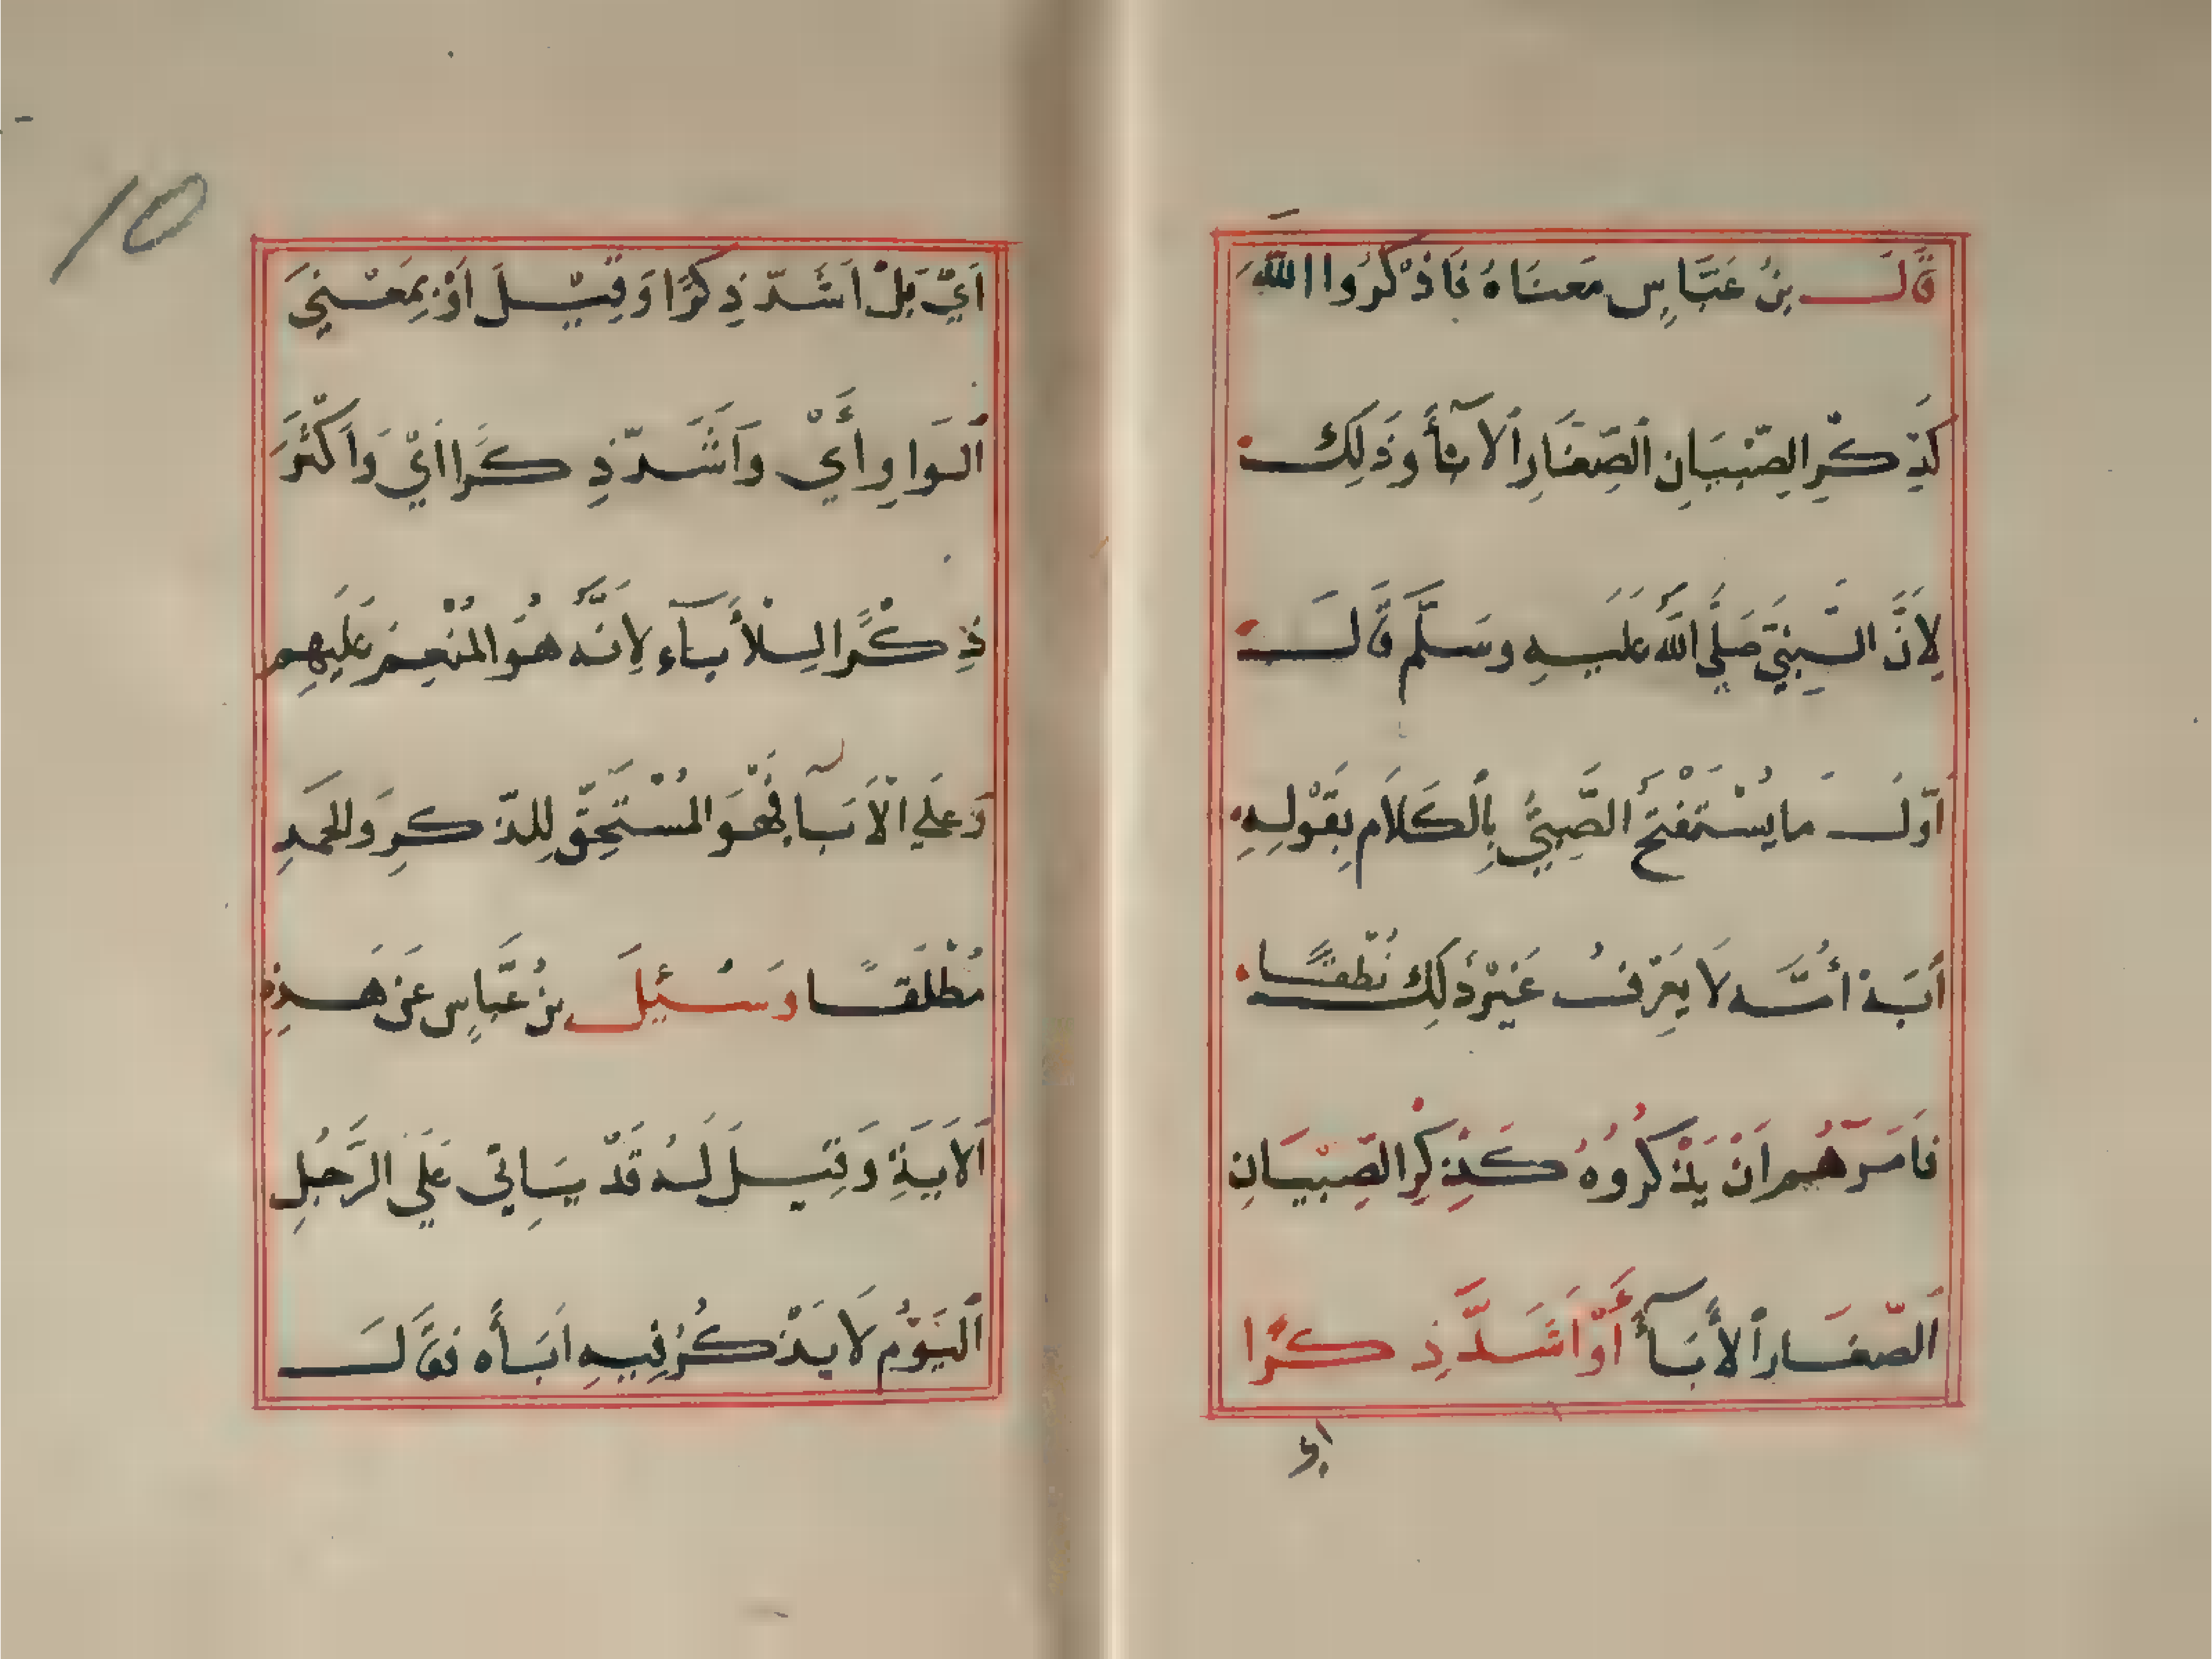 قَالَ بنُ عَبَّاسٍ مَعنَاهُ فَاذْكُرُوا اللَّهَ
كَذِكْرِ الصِّبْيَانِ الصِّغَارِ الآبَأَ وَذَلِكَ
لِاَنَّ النَّبِيَّ صَلَّي اللَّهُ عَلَيهِ وَسَلَّمَ قَالَ
اَوّلَ مَا يُسْتَفْتَحُ الصَّبِيُّ بِالْكَلَامِ بِقَوْلِهِ
أَبَهْ أُمَّه لَا يَعْرِفُ غَيْرَ ذَلِكَ نُطقًا
فَاَمَرَهُم اَنْ يَذْكُرُوهُ كَذِكْرِ الصِّبْيَانِ
الصّغَارِ الأَبَأَ أَوْ اَشَدَّ ذِكرًا
اَيْ
10
اَيْ بَلْ اَشَدّ ذِكْرًا وَقِيْلَ اَوْ بِمَعْنيَ
اَلوَاوِ أَيْ وَاَشَدّ ذِكرًا ايْ وَاَكْثَرَ
ذِكْرًا لِلأَبآءِ لِاَنَّهُ هُوَ المُنْعِمُ عَلَيهِم
وَعَلَي الْاَبَآ فَهُوَ المُسْتَحِقّ لِلذّكرِ وَالحَمدِ
مُطْلَقًا وَسُئِلَ بنُ عَبَّاسٍ عَن هَذِهِ
اَلاَيَةِ وَقِيلَ لَهُ قَدْ يَاتِي عَلَي الرَّجُلِ
اَليَوْم لَا يَذْكُرُ فِيهِ اَبَأَه فَقَالَ